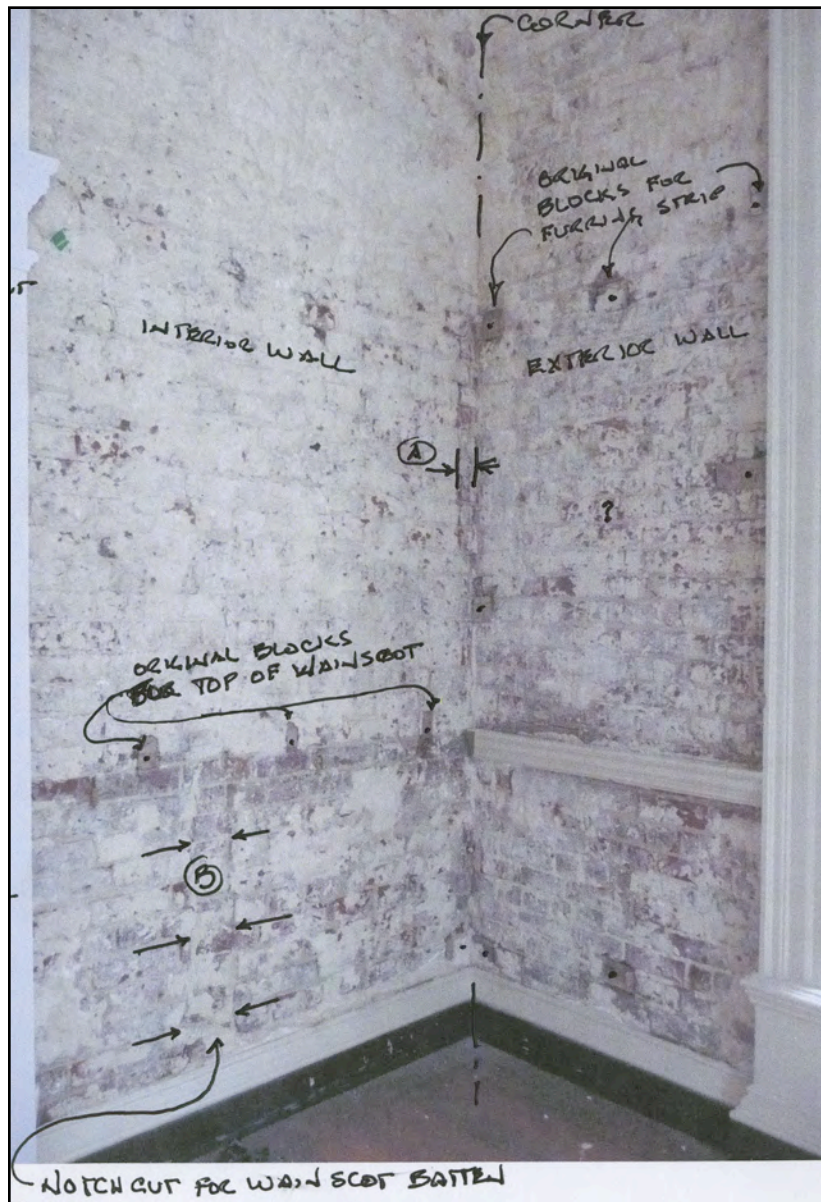 CORNER
ORIGINAL
BLOCKS FOR
FURRING STRIP
INTERIOR WALL
EXTERIOR WALL
A
?
ORIGINAL BLOCKS
FOR TOP OF WAINSCOT
B
NOTCH CUT FOR WAINSCOT BATTEN